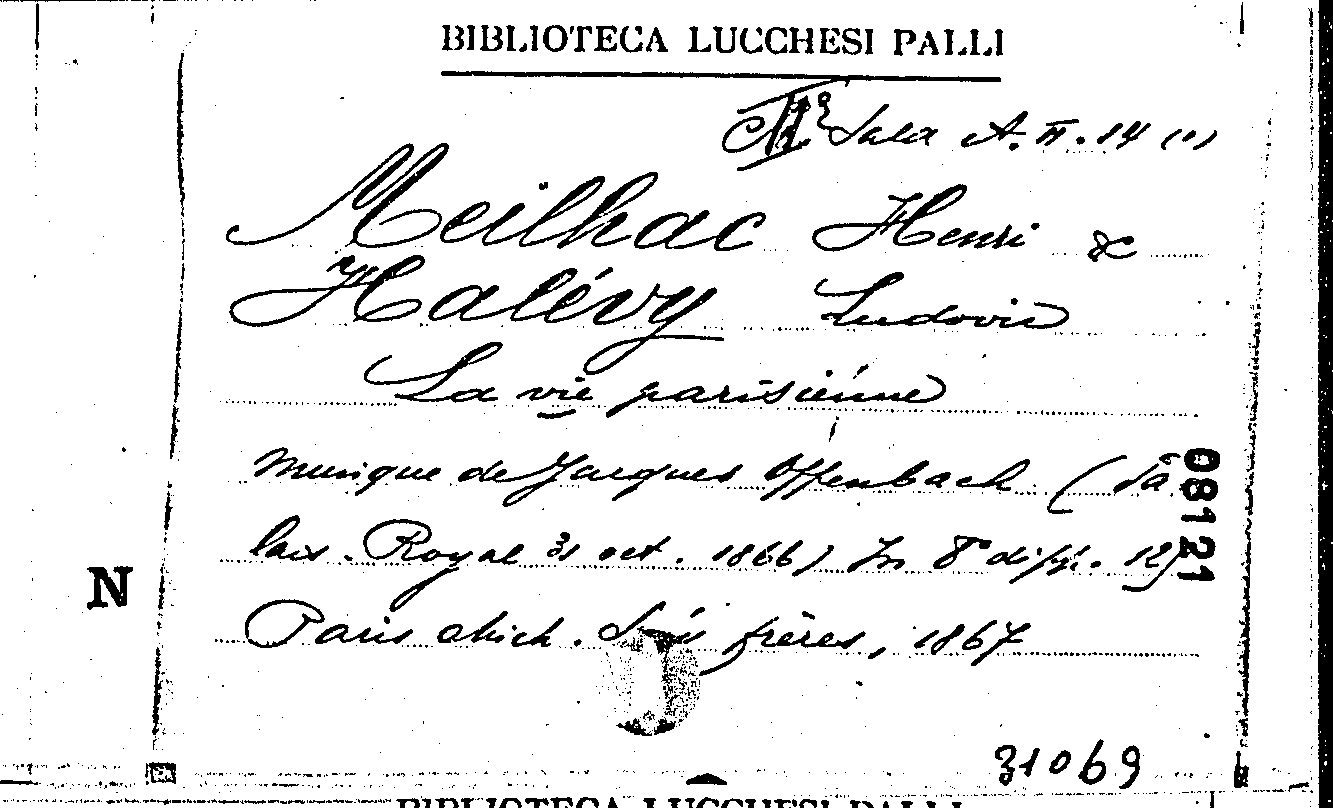 BIBLIOTECA LUCCHESI PALLI
Sala A. II. 14 (1)
Meilhac Henri &
Halévy Ludovic
La vie parisienne
musique de Jacques Offenbach (Pa
lais-Royal 31 oct. 1866) In 8º di pp. 129
Paris Mich. Lévy frères, 1867
08121
N
31069
BIBLIOTECA LUCCHESI PALLI